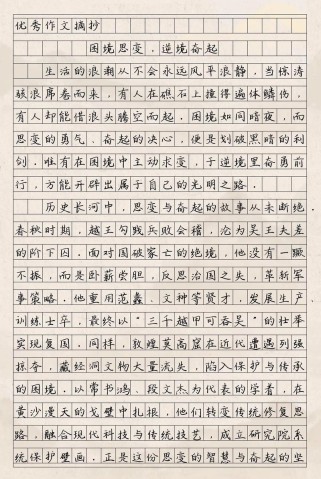 优秀作文摘抄
困境思变，逆境奋起
生活的浪潮从不会永远风平浪静，当惊涛
骇浪席卷而来，有人在礁石上撞得遍体鳞伤，
有人却能借浪头腾空而起。困境如同暗夜，而
思变的勇气、奋起的决心，便是划破黑暗的利
剑。唯有在困境中主动求变，于逆境里奋勇前
行，方能开辟出属于自己的光明之路。
历史长河中，思变与奋起的故事从未断绝。
春秋时期，越王勾践兵败会稽，沦为吴王夫差
的阶下囚。面对国破家亡的绝境，他没有一蹶
不振，而是卧薪尝胆，反思治国之失，革新军
事策略。他重用范蠡、文种等贤才，发展生产、
训练士卒，最终以“三千越甲可吞吴”的壮举
实现复国。同样，敦煌莫高窟在近代遭遇列强
掠夺，藏经洞文物大量流失，陷入保护与传承
的困境。以常书鸿、段文杰为代表的学者，在
黄沙漫天的戈壁中扎根，他们转变传统修复思
路，融合现代科技与传统技艺，成立研究院系
统保护壁画。正是这份思变的智慧与奋起的坚